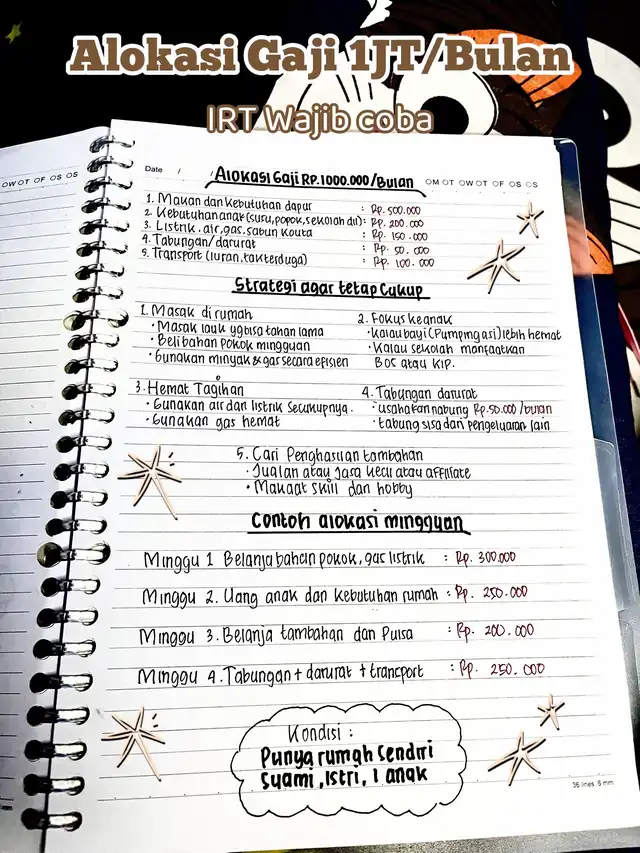 Alokasi Gaji 1JT/Bulan
IRT Wajib coba
OW OT OF OS OS
Date / /
Alokasi Gaji RP.1000.000/Bulan
OM OT OW OT OF OS OS
1. Makan dan Kebutuhan dapur : Rp. 500.000
2. Kebutuhan anak (susu, popok, sekolah dll) : Rp. 200.000
3. Listrik, air, gas, sabun kouta : Rp. 150.000
4. Tabungan/darurat : Rp. 50.000
5. Transport (iuran, tak terduga) : Rp. 100.000
Strategi agar tetap Cukup
1. Masak di rumah
• Masak lauk yg bisa tahan lama
• Beli bahan pokok mingguan
• Gunakan minyak & gas secara efisien
2. Fokus ke anak
• Kalau bayi (Pumping asi) lebih hemat
• Kalau sekolah manfaatkan
BOS atau KIP.
3. Hemat Tagihan
• Gunakan air dan listrik secukupnya.
• Gunakan gas hemat
4. Tabungan darurat
• usahakan nabung Rp.50.000/bulan
• tabung sisa dari pengeluaran lain
5. Cari Penghasilan tambahan
• Jualan atau Jasa kecil atau affiliate
• Makaat skill dan hobby
Contoh alokasi mingguan
Minggu 1 Belanja bahan pokok, gas listrik : Rp. 300.000
Minggu 2. Uang anak dan Kebutuhan rumah : Rp. 250.000
Minggu 3. Belanja tambahan dan Pulsa : Rp. 200.000
Minggu 4. Tabungan + darurat + transport : Rp. 250.000
Kondisi :
Punya rumah sendiri
Suami, Istri, 1 anak
36 lines, 6 mm